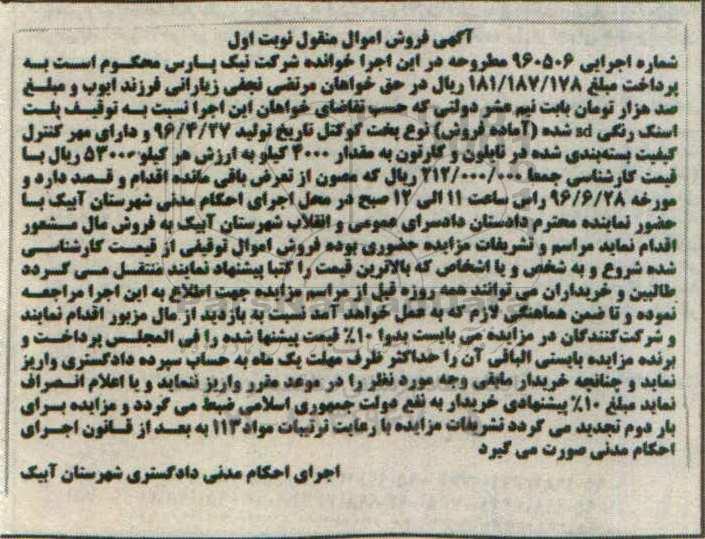 آگهی فروش اموال منقول نوبت اول
شماره اجرایی ۹۶۰۵۰۶ مطروحه در این اجرا خوانده شرکت نیک پارس محکوم است به
پرداخت مبلغ ۱۸۱/۱۸۷/۱۷۸ ریال در حق خواهان مرتضی نجفی زیارانی فرزند ایوب و مبلغ
صد هزار تومان بابت نیم عشر دولتی که حسب تقاضای خواهان این اجرا نسبت به توقیف پلت
استک رنگی sd شده (آماده فروش) نوع پخت کوکتل تاریخ تولید ۹۶/۴/۲۷ و دارای مهر کنترل
کیفیت بسته‌بندی شده در نایلون و کارتون به مقدار ۴۰۰۰ کیلو به ارزش هر کیلو ۵۳۰۰۰ ریال با
قیمت کارشناسی جمعا ۲۱۲/۰۰۰/۰۰۰ ریال که مصون از تعرض باقی مانده اقدام و قصد دارد و
مورخه ۹۶/۶/۲۸ راس ساعت ۱۱ الی ۱۲ صبح در محل اجرای احکام مدنی شهرستان آبیک با
حضور نماینده محترم دادستان دادسرای عمومی و انقلاب شهرستان آبیک به فروش مال مشعور
اقدام نماید مراسم و تشریفات مزایده حضوری بوده فروش اموال توقیفی از قیمت کارشناسی
شده شروع و به شخص و یا اشخاص که بالاترین قیمت را کتبا پیشنهاد نمایند منتقل می گردد
طالبین و خریداران می توانند همه روزه قبل از مراسم مزایده جهت اطلاع به این اجرا مراجعه
نموده و تا ضمن هماهنگی لازم که به عمل خواهد آمد نسبت به بازدید از مال مزبور اقدام نمایند
و شرکت‌کنندگان در مزایده می بایست بدوا ۱۰٪ قیمت پیشنها شده را فی المجلس پرداخت و
برنده مزایده بایستی الباقی آن را حداکثر ظرف مهلت یک ماه به حساب سپرده دادگستری واریز
نماید و چنانچه خریدار مابقی وجه مورد نظر را در موعد مقرر واریز ننماید و یا اعلام انصراف
نماید مبلغ ۱۰٪ پیشنهادی خریدار به نفع دولت جمهوری اسلامی ضبط می گردد و مزایده برای
بار دوم تجدید می گردد تشریفات مزایده با رعایت ترتیبات مواد ۱۱۳ به بعد از قانون اجرای
احکام مدنی صورت می گیرد
اجرای احکام مدنی دادگستری شهرستان آبیک